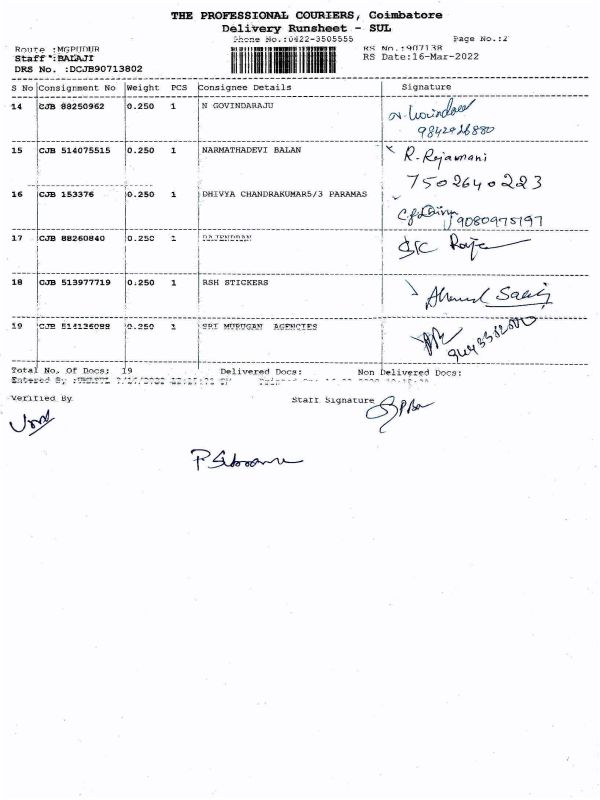 THE PROFESSIONAL COURIERS, Coimbatore
Delivery Runsheet - SUL
Phone No.:0422-3505555 Page No.:2
Route :MGPUDUR RS No.:907138
Staff :BALAJI RS Date:16-Mar-2022
DRS No. :DCJB90713802
S No Consignment No Weight PCS Consignee Details Signature
14 CJB 88250962 0.250 1 N GOVINDARAJU
9842926880
15 CJB 514075515 0.250 1 NARMATHADEVI BALAN R. Rajamani
7502640223
16 CJB 153376 0.250 1 DHIVYA CHANDRAKUMAR5/3 PARAMAS
9080975197
17 CJB 88260840 0.250 1 RAJENDRAN
18 CJB 513977719 0.250 1 RSH STICKERS
19 CJB 514126088 0.250 1 SRI MURUGAN AGENCIES
Total No. Of Docs: 19 Delivered Docs: Non Delivered Docs:
Entered By
Verified By Staff Signature